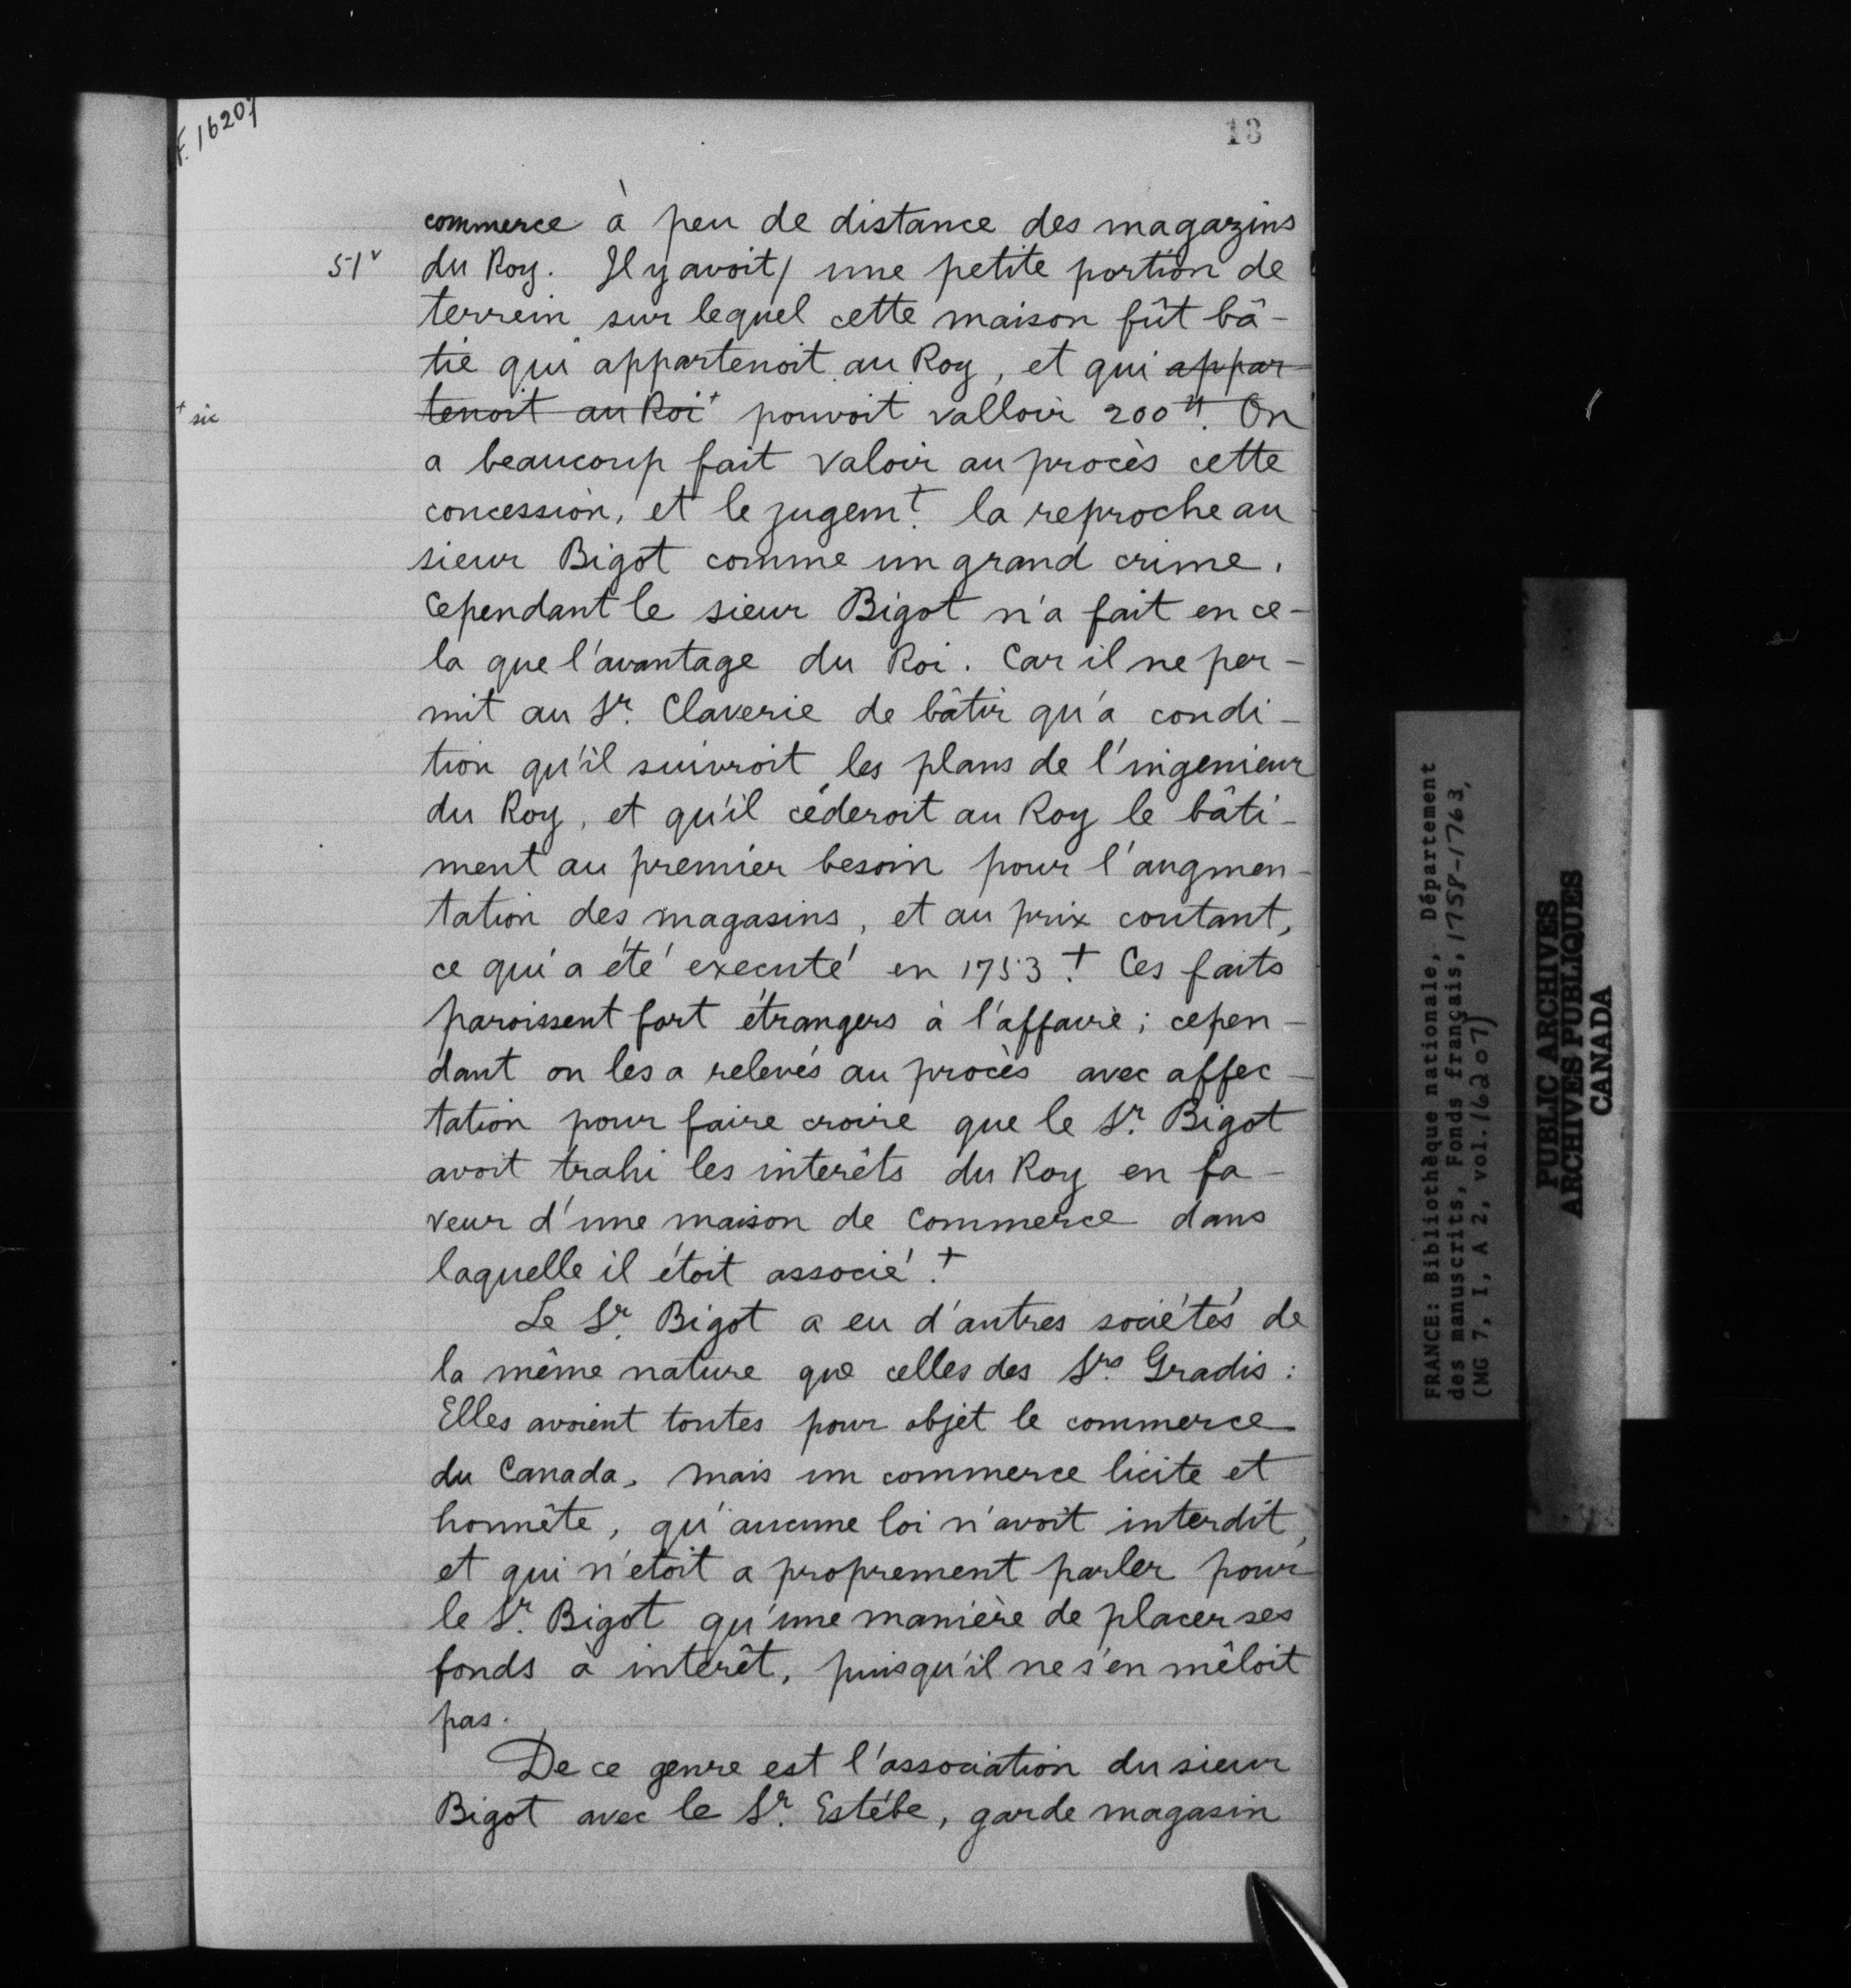 F. 16207
13
commerce à peu de distance des magazins
51v du Roy. Il y avoit/ une petite portion de
terrein sur lequel cette maison fût bâ-
tie qui appartenoit au Roy, et qui appar-
+ sic tenoit au Roi+ pouvoit valloir 200tt. On
a beaucoup fait valoir au procès cette
concession, et le jugemt. la reproche au
sieur Bigot comme un grand crime.
Cependant le sieur Bigot n'a fait en ce-
la que l'avantage du Roi. Car il ne per-
mit au Sr. Claverie de bâtir qu'à condi-
tion qu'il suivroit les plans de l'ingenieur
du Roy, et qu'il céderoit au Roy le bâti-
ment au premier besoin pour l'augmen-
tation des magasins, et au prix coutant,
ce qui a été executé en 1753.+ Ces faits
paroissent fort étrangers à l'affaire; cepen-
dant on les a relevés au procès avec affec-
tation pour faire croire que le Sr. Bigot
avoit trahi les interêts du Roy en fa-
veur d'une maison de Commerce dans
laquelle il étoit associé.+
Le Sr. Bigot a eu d'autres sociétés de
la même nature que celles des Srs. Gradis:
Elles avoient toutes pour objet le commerce
du Canada, mais un commerce licite et
honnête, qu'aucune loi n'avoit interdit,
et qui n'etoit a proprement parler pour
le Sr. Bigot qu'une manière de placer ses
fonds à interêt, puisqu'il ne s'en mêloit
pas.
De ce genre est l'association du sieur
Bigot avec le Sr. Estébe, garde magasin
FRANCE: Bibliothèque nationale, Département
des manuscrits, Fonds français, 1758-1763,
(MG 7, I, A 2, vol. 16207)
PUBLIC ARCHIVES
ARCHIVES PUBLIQUES
CANADA